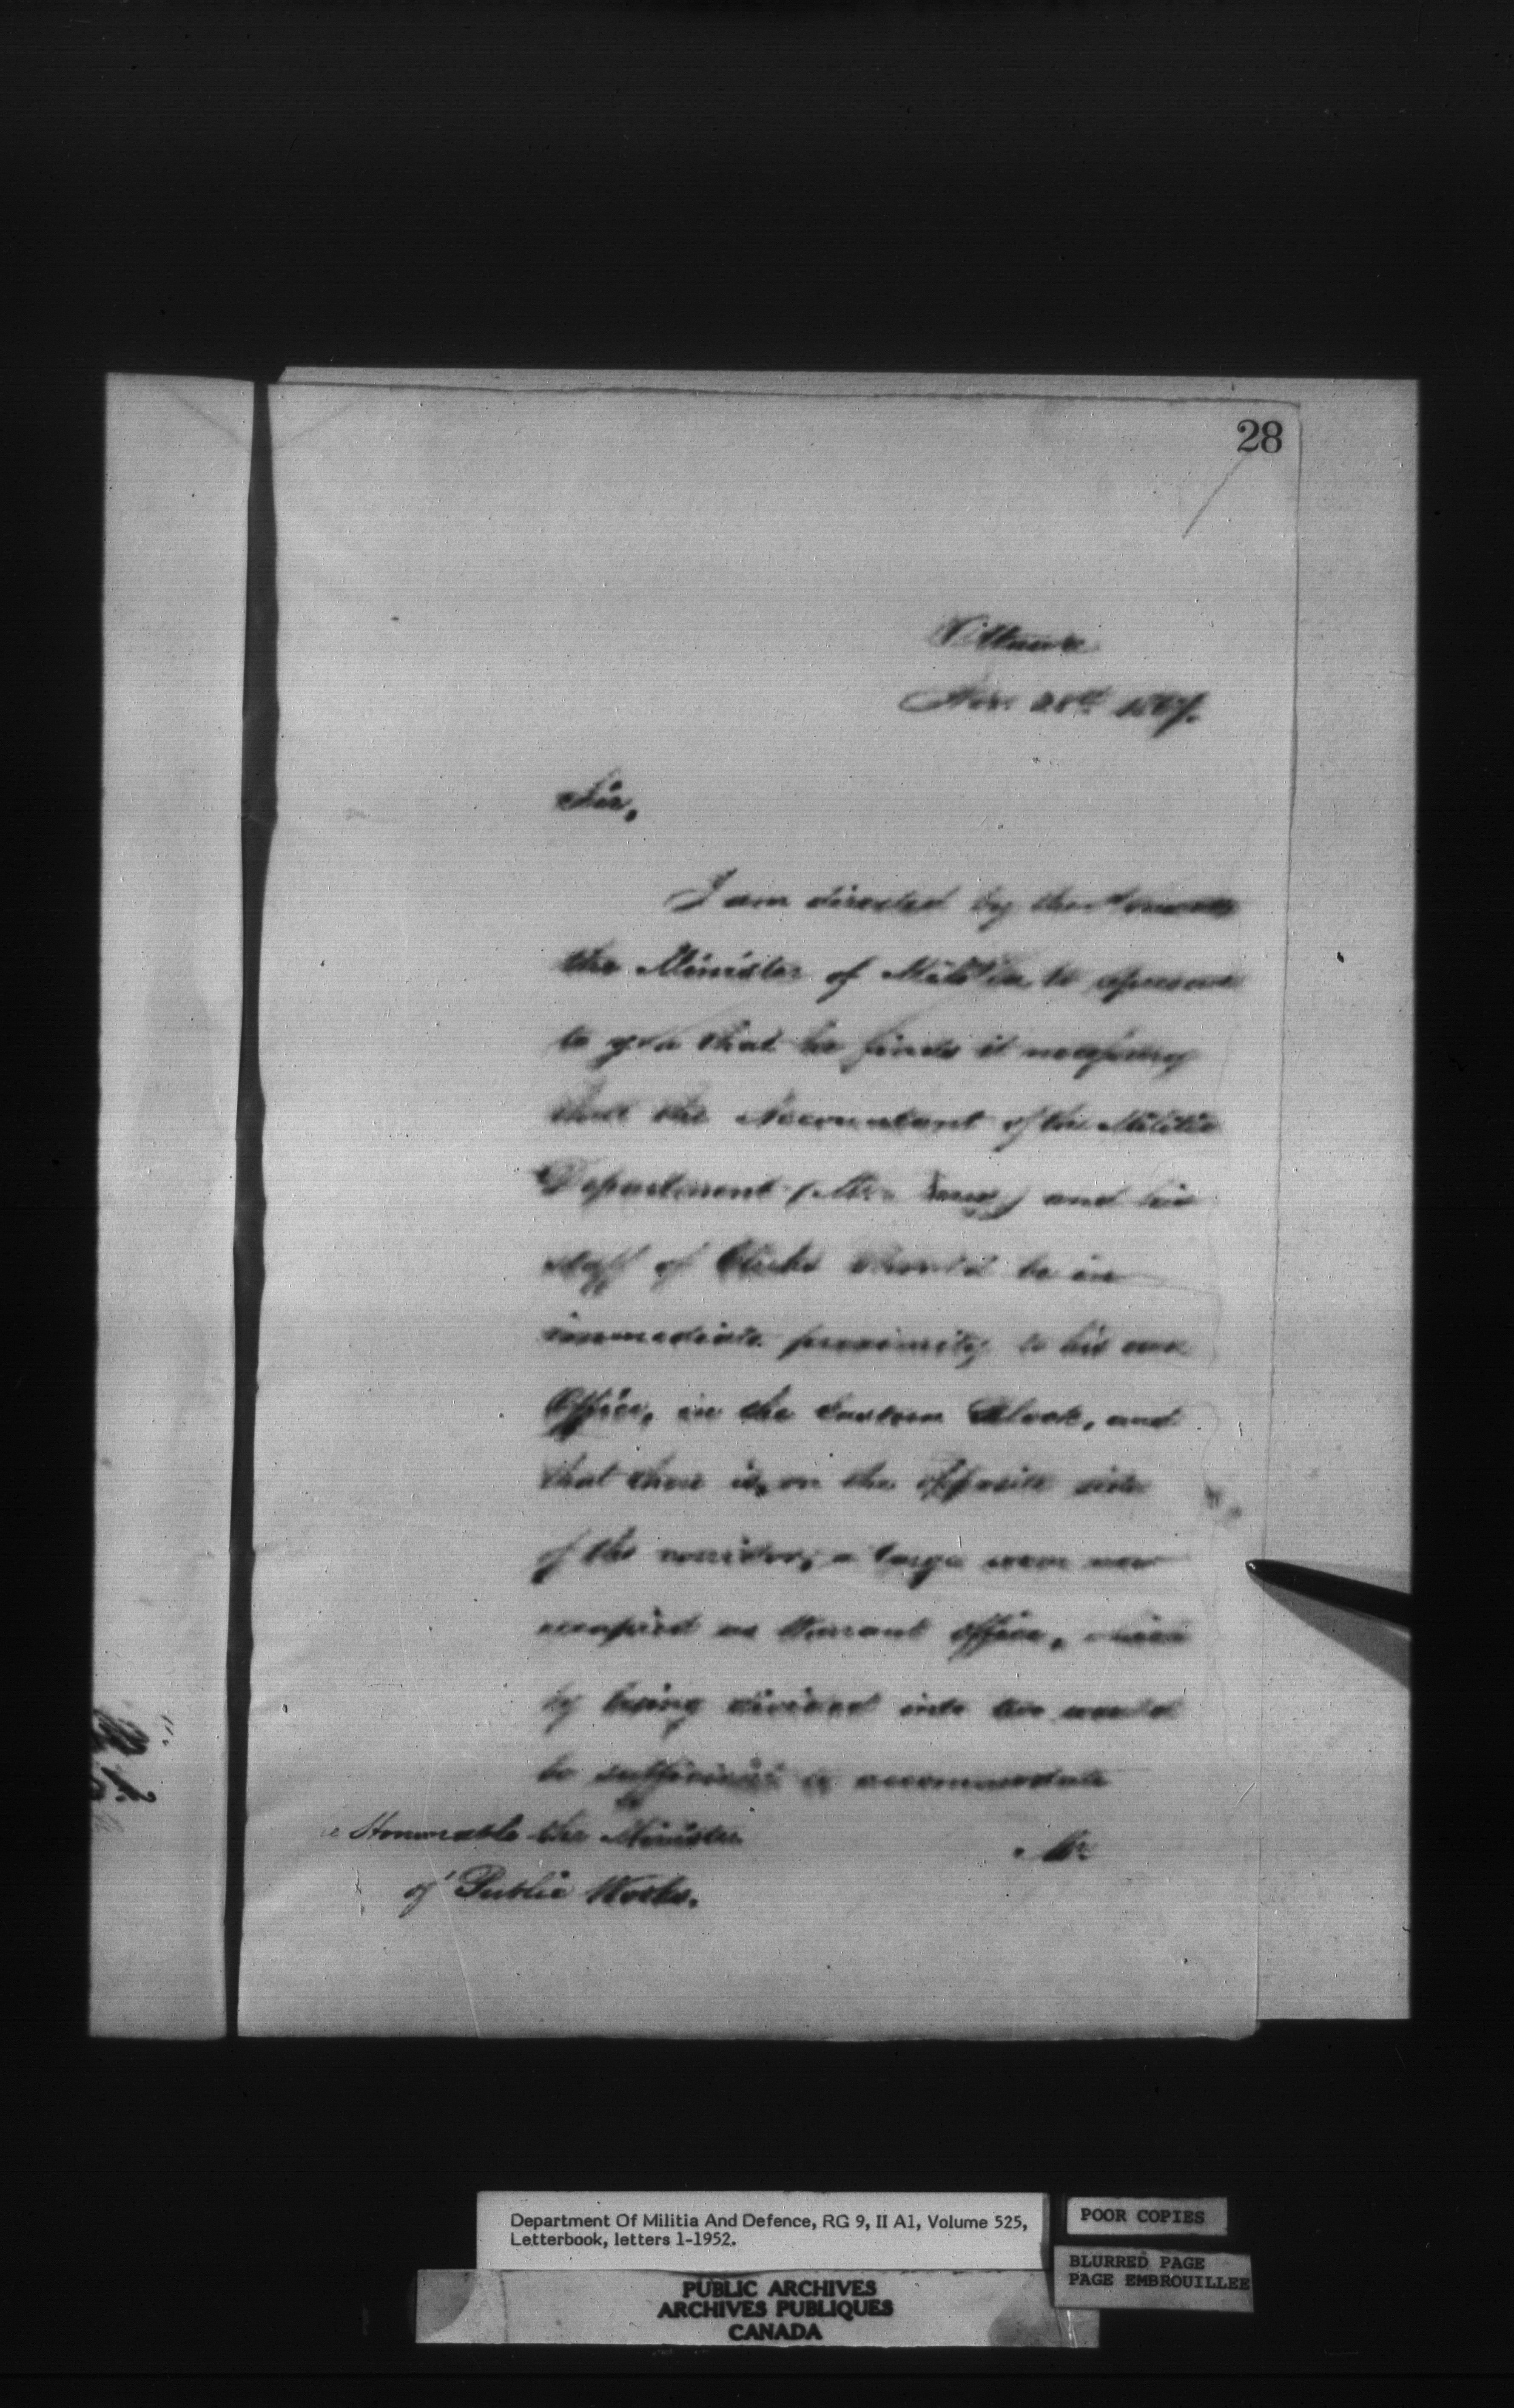 28
Ottawa
Nov. 28th 1867.
Sir,
I am directed by the
the Minister of Militia to represent
to you that he finds it necessary
that the Accountant of the Militia
Department (Mr. ) and his
staff of Clerks should be in
immediate proximity to his own
Office, in the Eastern Block, and
that there is, on the opposite side
of the corridor, a large room now
occupied as Warrant office, which
by being divided into two would
be sufficient to accommodate
Mr
Honorable the Minister
of Public Works.
Department Of Militia And Defence, RG 9, II A1, Volume 525,
Letterbook, letters 1-1952.
POOR COPIES
BLURRED PAGE
PAGE EMBROUILLEE
PUBLIC ARCHIVES
ARCHIVES PUBLIQUES
CANADA